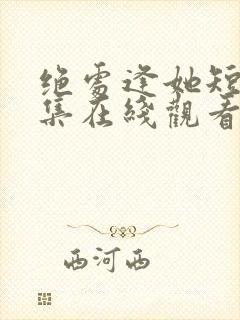 绝处逢她短
集在綫觀看
西河西